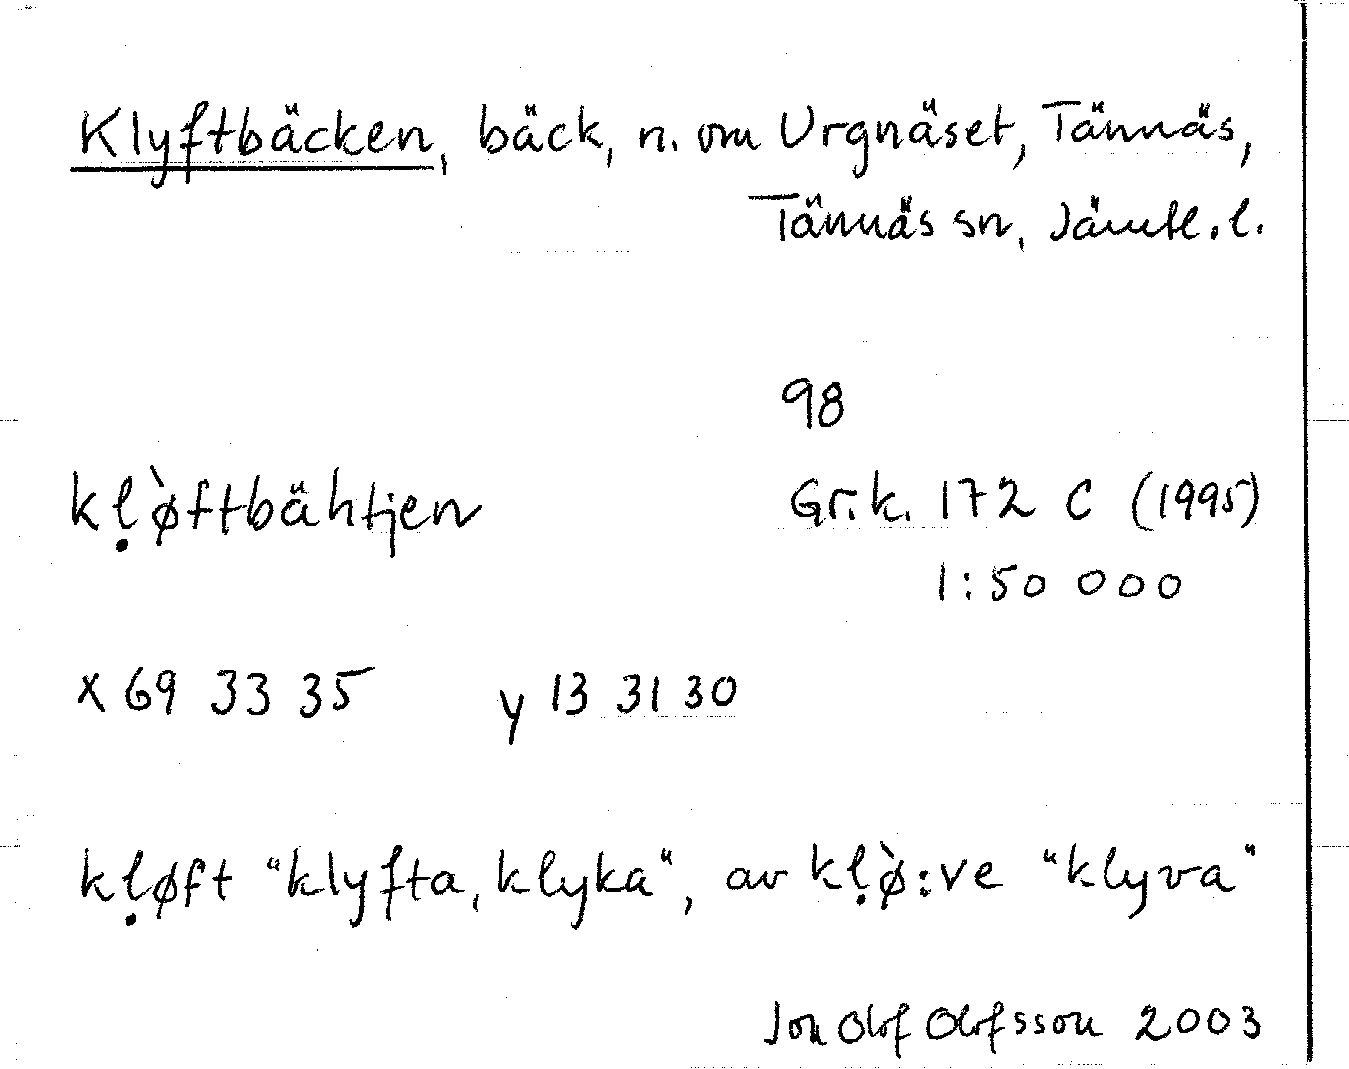 Klyftbäcken, bäck, n. om Urgnäset, Tännäs,
Tännäs sn, Jämtl. l.
98
kḷø̀ftbähtjen
Gr.k. 172 C (1995)
1:50 000
x 69 33 35 y 13 31 30
kḷøft "klyfta, klyka", av kḷø̀:ve "klyva"
Jon Olof Olofsson 2003